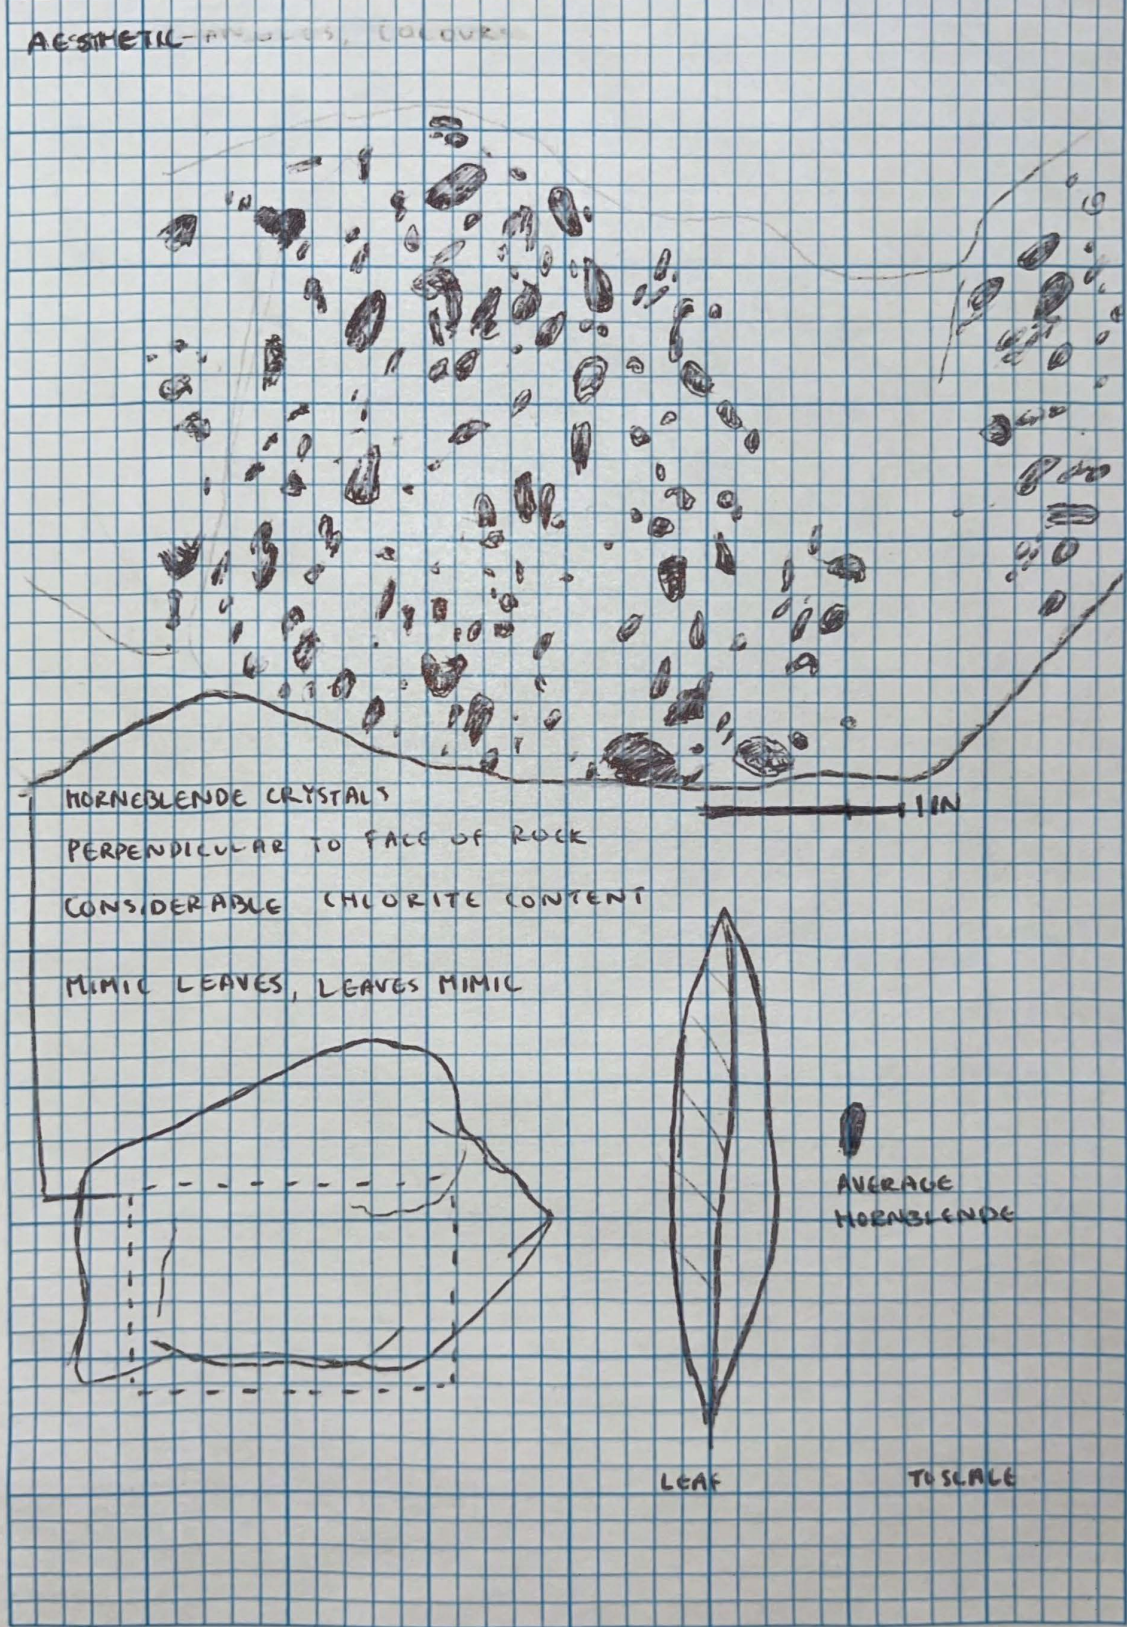 AESTHETIC - ANGLES, COLOURS
HORNEBLENDE CRYSTALS
PERPENDICULAR TO FACE OF ROCK
CONSIDERABLE CHLORITE CONTENT
MIMIC LEAVES, LEAVES MIMIC
1 IN
AVERAGE
HORNBLENDE
LEAF
TO SCALE